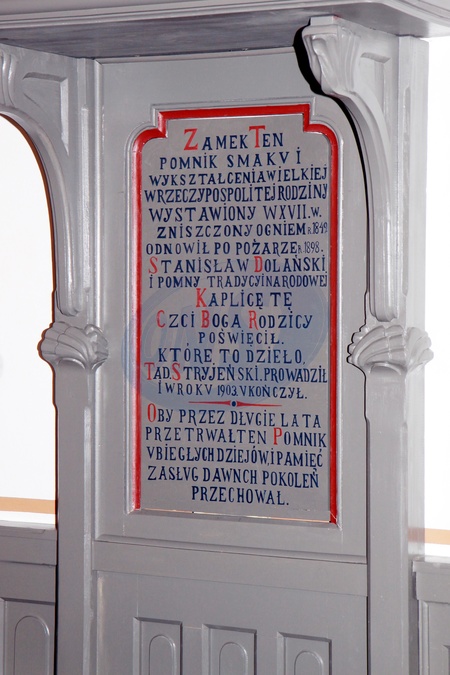 ZAMEK TEN
POMNIK SMAKU I
WYKSZTAŁCENIA WIELKIEJ
W RZECZYPOSPOLITEJ RODZINY
WYSTAWIONY W XVII.W.
ZNISZCZONY OGNIEM R.1849
ODNOWIŁ PO POŻARZE R.1898.
STANISŁAW DOLAŃSKI
I POMNY TRADYCYI NARODOWEJ
KAPLICĘ TĘ
CZCI BOGA RODZICY
POŚWIĘCIŁ.
KTÓRE TO DZIEŁO,
TAD STRYJEŃSKI.PROWADZIŁ
I W ROKU 1903.UKOŃCZYŁ.
OBY PRZEZ DŁUGIE LATA
PRZETRWAŁ TEN POMNIK
UBIEGŁYCH DZIEJÓW,I PAMIĘĆ
ZASŁUG DAWNCH POKOLEŃ
PRZECHOWAŁ.